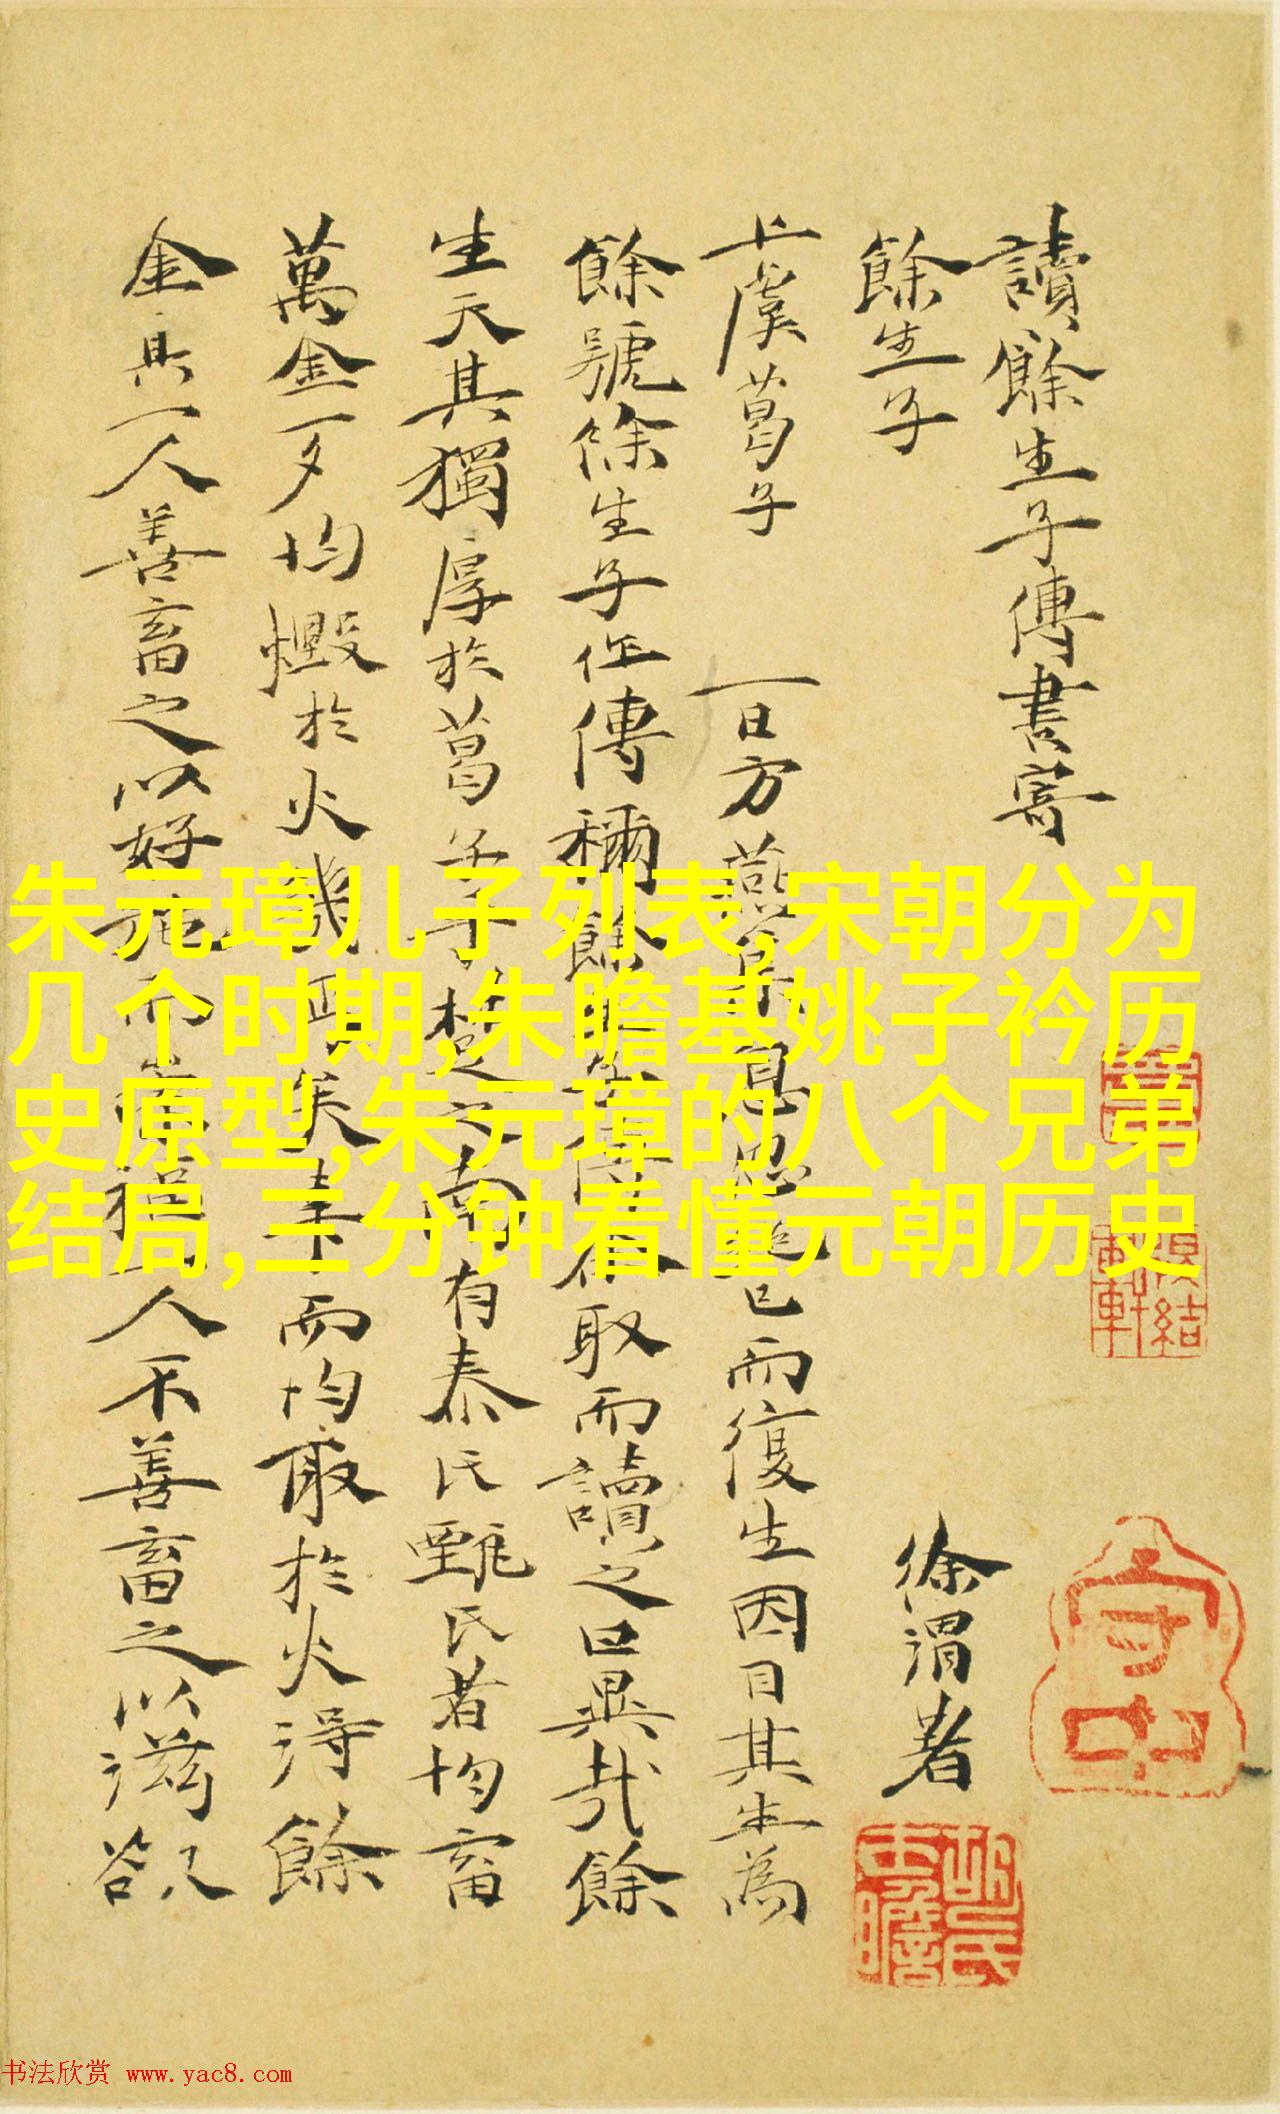 讀餘生子傳書寄
餘生子
徐渭著
上虞葛子 一日方息已而復生因目其生為
餘號餘生子任傳稱餘取而讀之曰異哉餘
生天其獨厚於葛子乎楚之南有泰氏甄氏者均畜
萬金一夕均燬於火幾矣幸而均取於火得餘
金其一人善畜之以好施而一人不善畜之以滋欲
朱元璋儿子列表,宋朝分为
几个时期,朱瞻基姚子衿历
史原型,朱元璋的八个兄弟
结局,三分钟看懂元朝历史
守中
书法欣赏 www.yac8.com